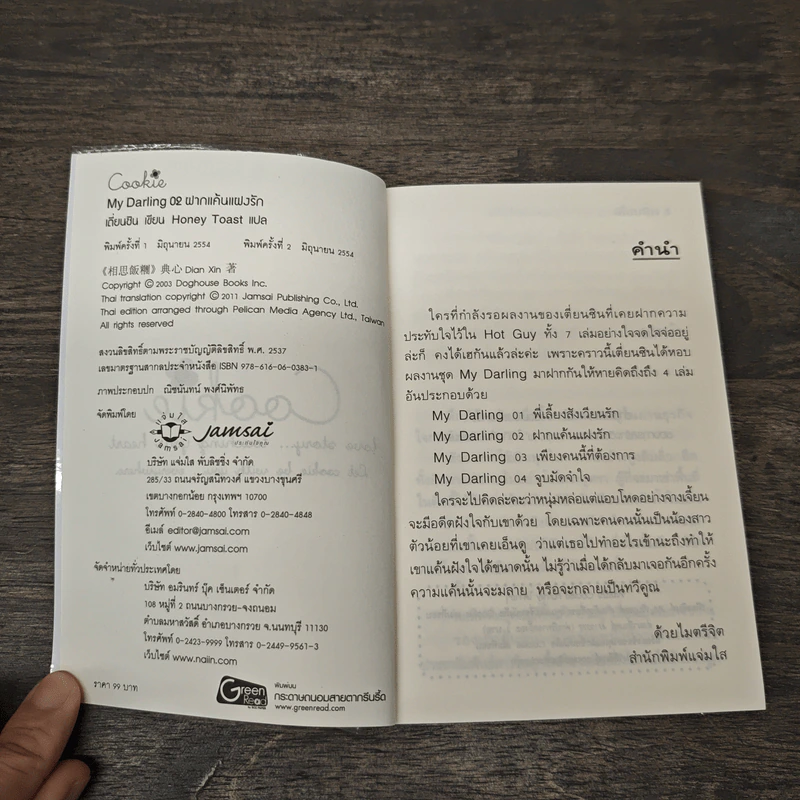 Cookie
My Darling 02 ฝากแค้นแฝงรัก
เตี่ยนซิน เขียน Honey Toast แปล
พิมพ์ครั้งที่ 1 มิถุนายน 2554 พิมพ์ครั้งที่ 2 มิถุนายน 2554
《相思飯糰》典心 Dian Xin 著
Copyright © 2003 Doghouse Books Inc.
Thai translation copyright © 2011 Jamsai Publishing Co., Ltd.
Thai edition arranged through Pelican Media Agency Ltd., Taiwan
All rights reserved
สงวนลิขสิทธิ์ตามพระราชบัญญัติลิขสิทธิ์ พ.ศ. 2537
เลขมาตรฐานสากลประจำหนังสือ ISBN 978-616-06-0383-1
ภาพประกอบปก ณิชนันทน์ พงศ์นิพัทธ
จัดพิมพ์โดย
แจ่มใส
Jamsai
Jamsai
บริษัท แจ่มใส พับลิชชิ่ง จำกัด
285/33 ถนนจรัญสนิทวงศ์ แขวงบางขุนศรี
เขตบางกอกน้อย กรุงเทพฯ 10700
โทรศัพท์ 0-2840-4800 โทรสาร 0-2840-4848
อีเมล์ editor@jamsai.com
เว็บไซต์ www.jamsai.com
จัดจำหน่ายทั่วประเทศโดย
บริษัท อมรินทร์ บุ๊ค เซ็นเตอร์ จำกัด
108 หมู่ที่ 2 ถนนบางกรวย-จงถนอม
ตำบลมหาสวัสดิ์ อำเภอบางกรวย จ.นนทบุรี 11130
โทรศัพท์ 0-2423-9999 โทรสาร 0-2449-9561-3
เว็บไซต์ www.naiin.com
ราคา 99 บาท
Green Read
พิมพ์บน
กระดาษถนอมสายตากรีนรี้ด
www.greenread.com
คำนำ
ใครที่กำลังรอผลงานของเตี่ยนซินที่เคยฝากความ
ประทับใจไว้ใน Hot Guy ทั้ง 7 เล่มอย่างใจจดใจจ่ออยู่
ล่ะก็ คงได้เฮกันแล้วล่ะค่ะ เพราะคราวนี้เตี่ยนซินได้หอบ
ผลงานชุด My Darling มาฝากกันให้หายคิดถึงถึง 4 เล่ม
อันประกอบด้วย
My Darling 01 พี่เลี้ยงสังเวียนรัก
My Darling 02 ฝากแค้นแฝงรัก
My Darling 03 เพียงคนนี้ที่ต้องการ
My Darling 04 จูบมัดจำใจ
ใครจะไปคิดล่ะคะว่าหนุ่มหล่อแต่แอบโหดอย่างจางเจี้ยน
จะมีอดีตฝังใจกับเขาด้วย โดยเฉพาะคนคนนั้นเป็นน้องสาว
ตัวน้อยที่เขาเคยเอ็นดู ว่าแต่เธอไปทำอะไรเข้านะถึงทำให้
เขาแค้นฝังใจได้ขนาดนั้น ไม่รู้ว่าเมื่อได้กลับมาเจอกันอีกครั้ง
ความแค้นนั้นจะมลาย หรือจะกลายเป็นทวีคูณ
ด้วยไมตรีจิต
สำนักพิมพ์แจ่มใส